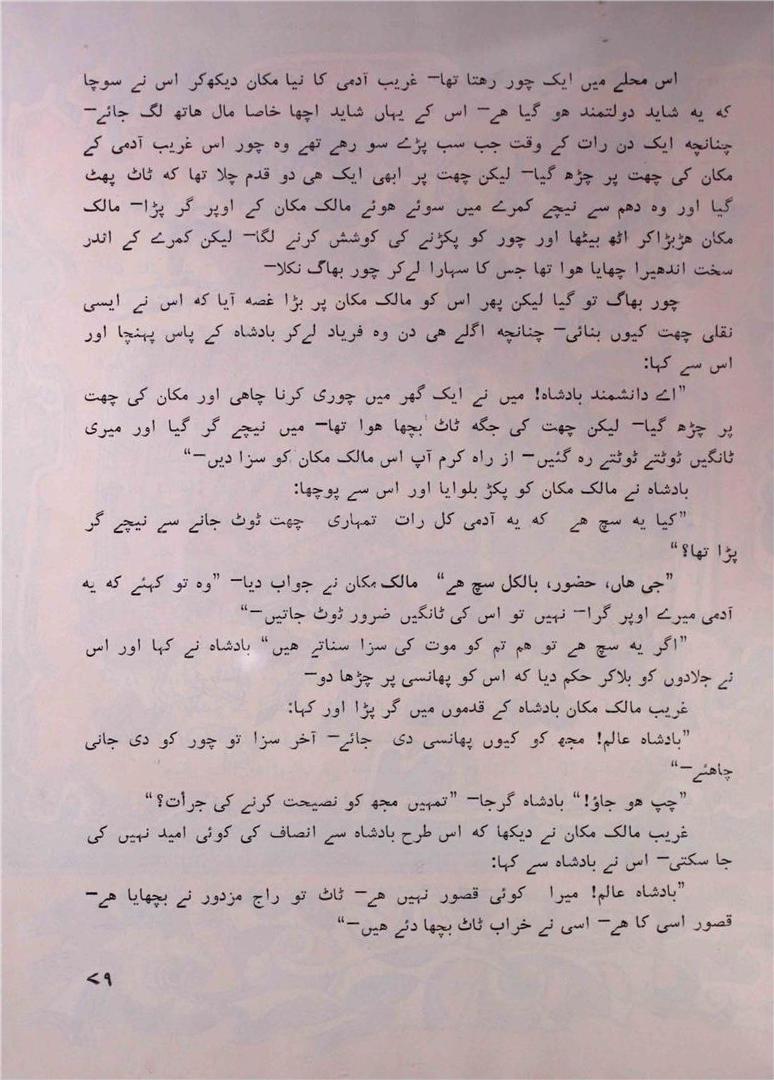 اس محلے میں ایک چور رهتا تھا— غریب آدمی کا نیا مکان دیکھکر اس نے سوچا
که یه شاید دولتمند هو گیا هے— اس کے یہاں شاید اچھا خاصا مال هاتھ لگ جائے—
چنانچه ایک دن رات کے وقت جب سب پڑے سو رهے تھے وه چور اس غریب آدمی کے
مکان کی چھت پر چڑھ گیا— لیکن چھت پر ابھی ایک هی دو قدم چلا تھا که ٹاٹ پھٹ
گیا اور وه دهم سے نیچے کمرے میں سوئے هوئے مالک مکان کے اوپر گر پڑا— مالک
مکان هڑبڑاکر اٹھ بیٹھا اور چور کو پکڑنے کی کوشش کرنے لگا— لیکن کمرے کے اندر
سخت اندھیرا چھایا هوا تھا جس کا سہارا لےکر چور بھاگ نکلا—
چور بھاگ تو گیا لیکن پھر اس کو مالک مکان پر بڑا غصه آیا که اس نے ایسی
نقلی چھت کیوں بنائی— چنانچه اگلے هی دن وه فریاد لےکر بادشاه کے پاس پہنچا اور
اس سے کہا:
”اے دانشمند بادشاه! میں نے ایک گھر میں چوری کرنا چاهی اور مکان کی چھت
پر چڑھ گیا— لیکن چھت کی جگه ٹاٹ بچھا هوا تھا— میں نیچے گر گیا اور میری
ٹانگیں ٹوٹتے ٹوٹتے ره گئیں— از راه کرم آپ اس مالک مکان کو سزا دیں—“
بادشاه نے مالک مکان کو پکڑ بلوایا اور اس سے پوچھا:
”کیا یه سچ هے که یه آدمی کل رات تمہاری چھت ٹوٹ جانے سے نیچے گر
پڑا تھا؟“
”جی هاں، حضور، بالکل سچ هے“ مالک مکان نے جواب دیا— ”وه تو کہئے که یه
آدمی میرے اوپر گرا— نہیں تو اس کی ٹانگیں ضرور ٹوٹ جاتیں—“
”اگر یه سچ هے تو هم تم کو موت کی سزا سناتے هیں“ بادشاه نے کہا اور اس
نے جلادوں کو بلاکر حکم دیا که اس کو پھانسی پر چڑھا دو—
غریب مالک مکان بادشاه کے قدموں میں گر پڑا اور کہا:
”بادشاه عالم! مجھ کو کیوں پھانسی دی جائے— آخر سزا تو چور کو دی جانی
چاهئے—“
”چپ هو جاؤ!“ بادشاه گرجا— ”تمہیں مجھ کو نصیحت کرنے کی جرأت؟“
غریب مالک مکان نے دیکھا که اس طرح بادشاه سے انصاف کی کوئی امید نہیں کی
جا سکتی— اس نے بادشاه سے کہا:
”بادشاه عالم! میرا کوئی قصور نہیں هے— ٹاٹ تو راج مزدور نے بچھایا هے—
قصور اسی کا هے— اسی نے خراب ٹاٹ بچھا دئے هیں—“
۷۹